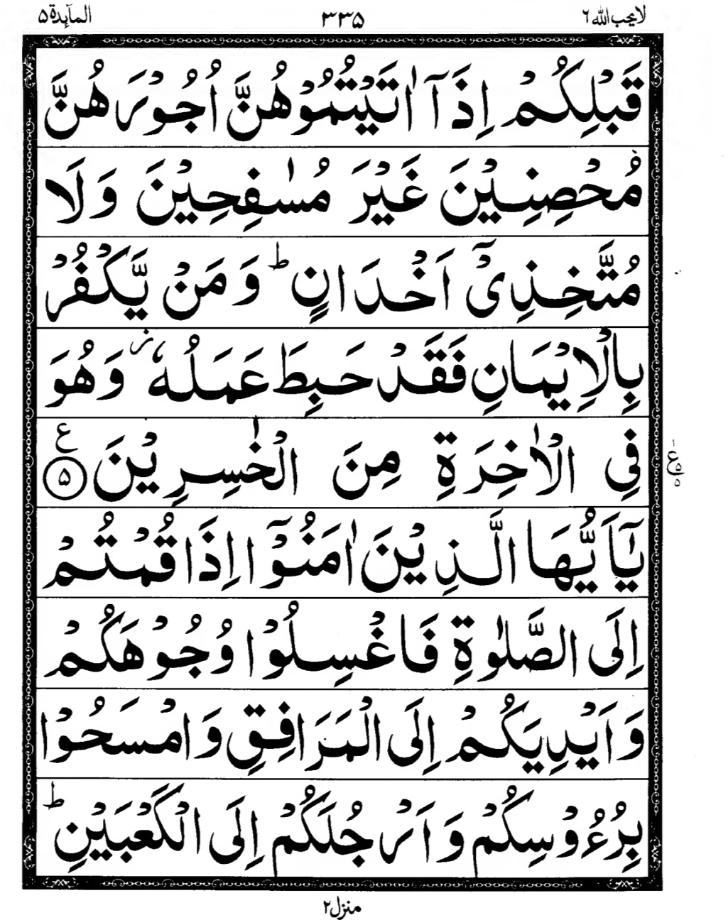 لا یحب الله ۶ ۳۳۵ المآىِٕدة ۵
قَبْلِكُمْ اِذَاۤ اٰتَیْتُمُوْهُنَّ اُجُوْرَهُنَّ
مُحْصِنِیْنَ غَیْرَ مُسٰفِحِیْنَ وَلَا
مُتَّخِذِیْۤ اَخْدَانٍ ؕ وَمَنْ یَّكْفُرْ
بِالْاِیْمَانِ فَقَدْ حَبِطَ عَمَلُهٗ ؗ وَهُوَ
فِی الْاٰخِرَةِ مِنَ الْخٰسِرِیْنَ ۵ ع
یٰۤاَیُّهَا الَّذِیْنَ اٰمَنُوْۤا اِذَا قُمْتُمْ
اِلَی الصَّلٰوةِ فَاغْسِلُوْا وُجُوْهَكُمْ
وَاَیْدِیَكُمْ اِلَی الْمَرَافِقِ وَامْسَحُوْا
بِرُءُوْسِكُمْ وَاَرْجُلَكُمْ اِلَی الْكَعْبَیْنِ ؕ
منزل ۲